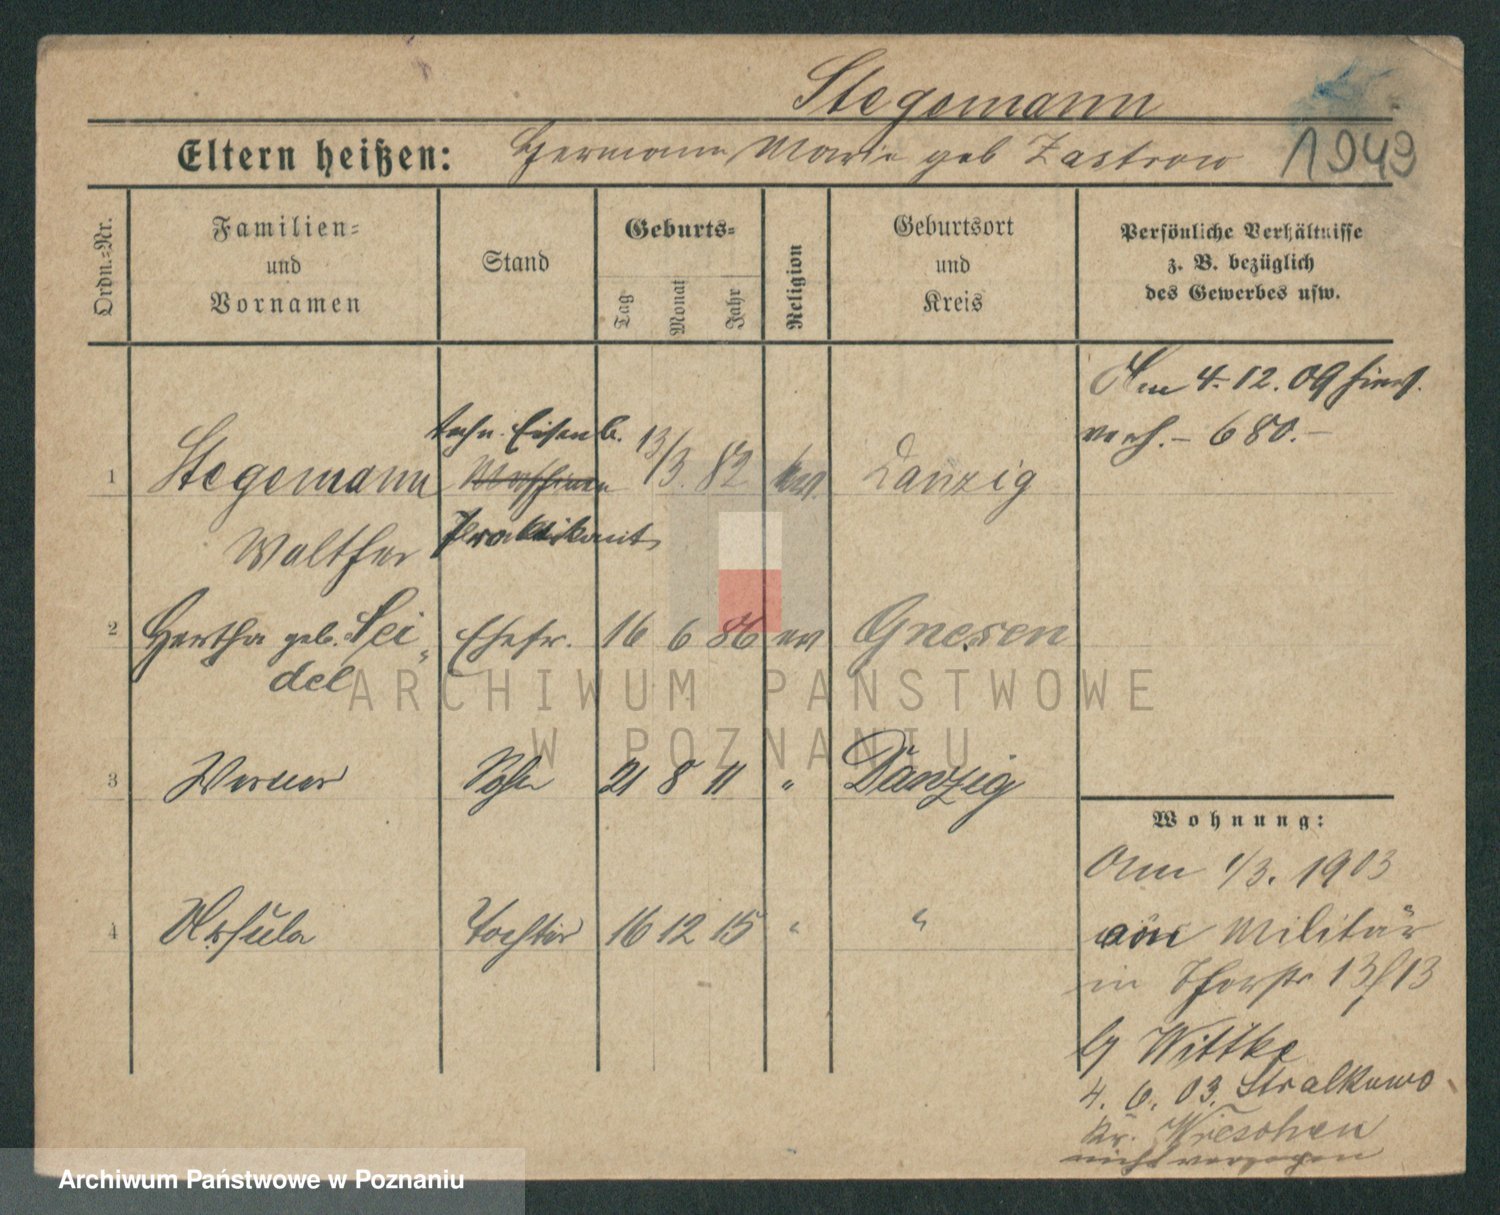 Stegemann
Eltern heißen: Hermann, Marie geb Zastrow
1949
Ordn.-Nr.
Familien-
und
Vornamen
Stand
Geburts-
Tag
Monat
Jahr
Religion
Geburtsort
und
Kreis
Persönliche Verhältnisse
z. B. bezüglich
des Gewerbes usw.
Am 4.12.09 hiers.
verh. – 680. –
techn. Eisenb.
1 Stegemann Maschinen 13/3. 82 ev. Danzig
Walther Praktikant
2 Hertha geb. Sei- Ehefr. 16 6 86 ev Gnesen
del
3 Werner Sohn 21 8 11 " Danzig
4 Ursula Tochter 16 12 15 " "
Wohnung:
Am 1/3. 1903
von Militär
in Thorn 13/13
bg Wittke
4. 6. 03. Stralkowo
Kr. Wreschen
nicht verzogen
ARCHIWUM PAŃSTWOWE
W POZNANIU
Archiwum Państwowe w Poznaniu